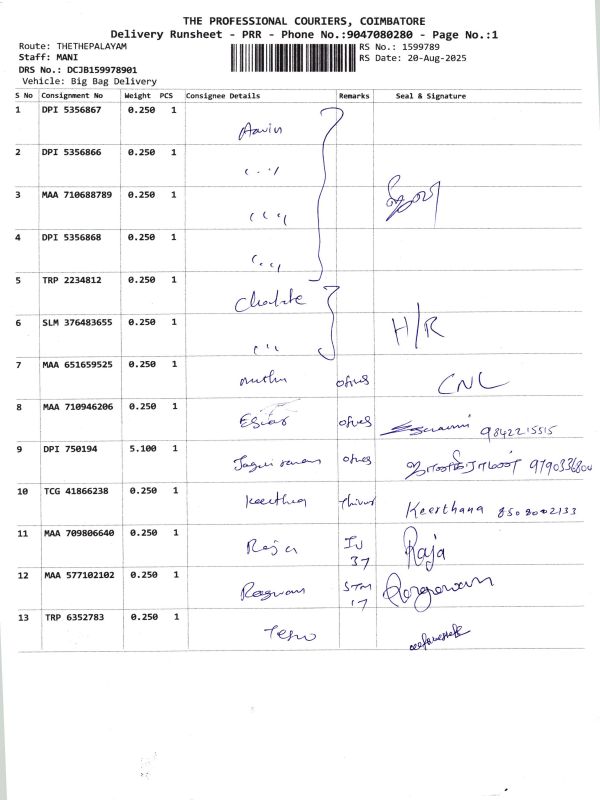 THE PROFESSIONAL COURIERS, COIMBATORE
Delivery Runsheet - PRR - Phone No.:9047080280 - Page No.:1
Route: THETHEPALAYAM
RS No.: 1599789
Staff: MANI
RS Date: 20-Aug-2025
DRS No.: DCJB159978901
Vehicle: Big Bag Delivery
S No Consignment No Weight PCS Consignee Details Remarks Seal & Signature
1 DPI 5356867 0.250 1
2 DPI 5356866 0.250 1
3 MAA 710688789 0.250 1
4 DPI 5356868 0.250 1
5 TRP 2234812 0.250 1
6 SLM 376483655 0.250 1 H/R
7 MAA 651659525 0.250 1 CNL
8 MAA 710946206 0.250 1 9842215515
9 DPI 750194 5.100 1
10 TCG 41866238 0.250 1 Keerthana 8508002133
11 MAA 709806640 0.250 1 Raja 37 Raja
12 MAA 577102102 0.250 1 STM 17
13 TRP 6352783 0.250 1